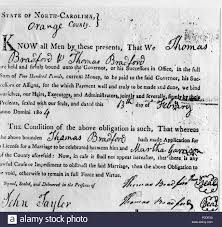 STATE OF NORTH-CAROLINA, }
Orange County. }
KNOW all Men by these presents, That We Thomas
Bradford & Thomas Bradford
held and firmly bound unto the Governor, or his Successors in Office, in the full
Sum of Five Hundred Pounds, current Money, to be paid to the said Governor, his
Successors or Assigns, for the which Payment well and truly to be made and done, we
bind ourselves, our Heirs, Executors, and Administrators, jointly and severally, firmly by these
presents, sealed with our Seals, and dated this 13th day of
anno Domini 180 4
THE Condition of the above obligation is such, That whereas
the above bounden Thomas Bradford hath made Application for
a License for a Marriage to be celebrated between him and Martha
Now, in case it shall not appear hereafter, that there is
any lawful Cause to obstruct the said Marriage, then the above obligation to be void,
otherwise to remain in full Force and Virtue.
Signed, Sealed, and Delivered in the Presence of
Thomas Bradford (Seal)
John Taylor
Thomas Bradford (Seal)
alamy stock photo